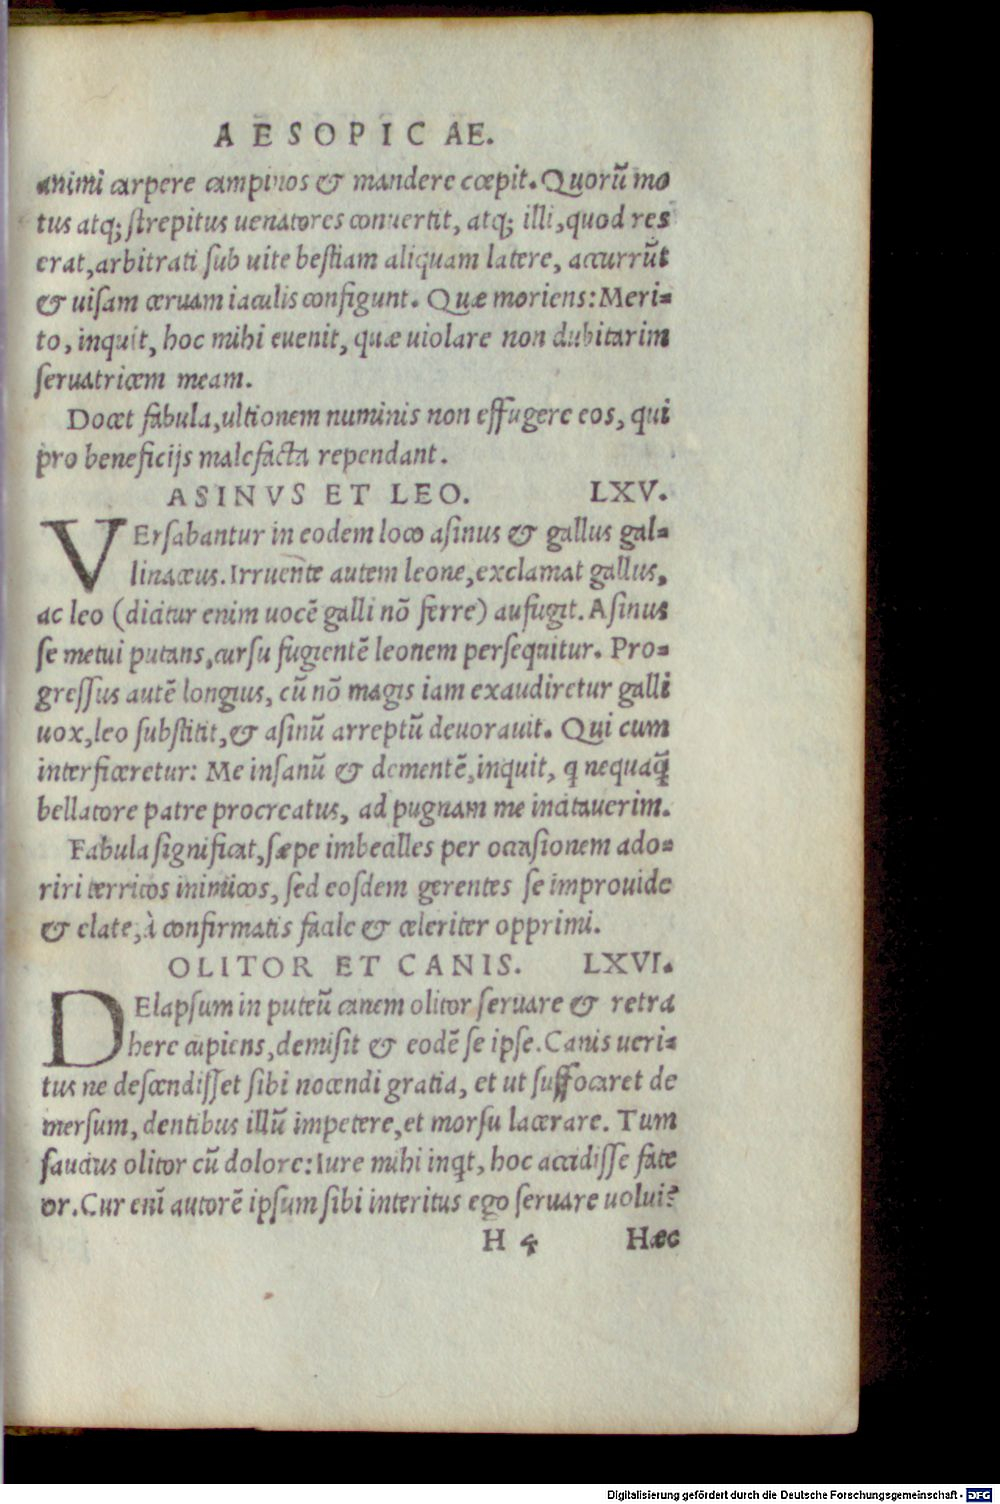 AESOPICAE.
animi carpere campinos & mandere cœpit. Quorũ mo
tus atq; ſtrepitus uenatores conuertit, atq; illi, quod res
erat, arbitrati ſub uite beſtiam aliquam latere, accurrũt
& uiſam ceruam iaculis configunt. Quæ moriens: Meri-
to, inquit, hoc mihi euenit, quæ uiolare non dubitarim
ſeruatricem meam.
Docet fabula, ultionem numinis non effugere eos, qui
pro beneficijs malefacta rependant.
ASINVS ET LEO. LXV.
VErſabantur in eodem loco aſinus & gallus gal-
linaceus. Irruente autem leone, exclamat gallus,
ac leo (dicitur enim uocẽ galli nõ ferre) aufugit. Aſinus
ſe metui putans, curſu fugientẽ leonem perſequitur. Pro-
greſſus autẽ longius, cũ nõ magis iam exaudiretur galli
uox, leo ſubſtitit, & aſinũ arreptũ deuorauit. Qui cum
interficeretur: Me inſanũ & dementẽ, inquit, q nequaq̃
bellatore patre procreatus, ad pugnam me incitauerim.
Fabula significat, ſæpe imbecilles per occaſionem ado-
riri territos inimicos, ſed eoſdem gerentes ſe improuide
& elate, à confirmatis facile & celeriter opprimi.
OLITOR ET CANIS. LXVI.
DElapſum in puteũ canem olitor ſeruare & retra
here cupiens, demiſit & eodẽ ſe ipſe. Canis ueri-
tus ne deſcendiſſet ſibi nocendi gratia, et ut ſuffocaret de
merſum, dentibus illũ impetere, et morſu lacerare. Tum
ſaucius olitor cũ dolore: Iure mihi inqt, hoc accidiſſe fate
or. Cur enĩ autorẽ ipſum ſibi interitus ego ſeruare uolui?
H 4 Hæc
Digitalisierung gefördert durch die Deutsche Forschungsgemeinschaft - DFG